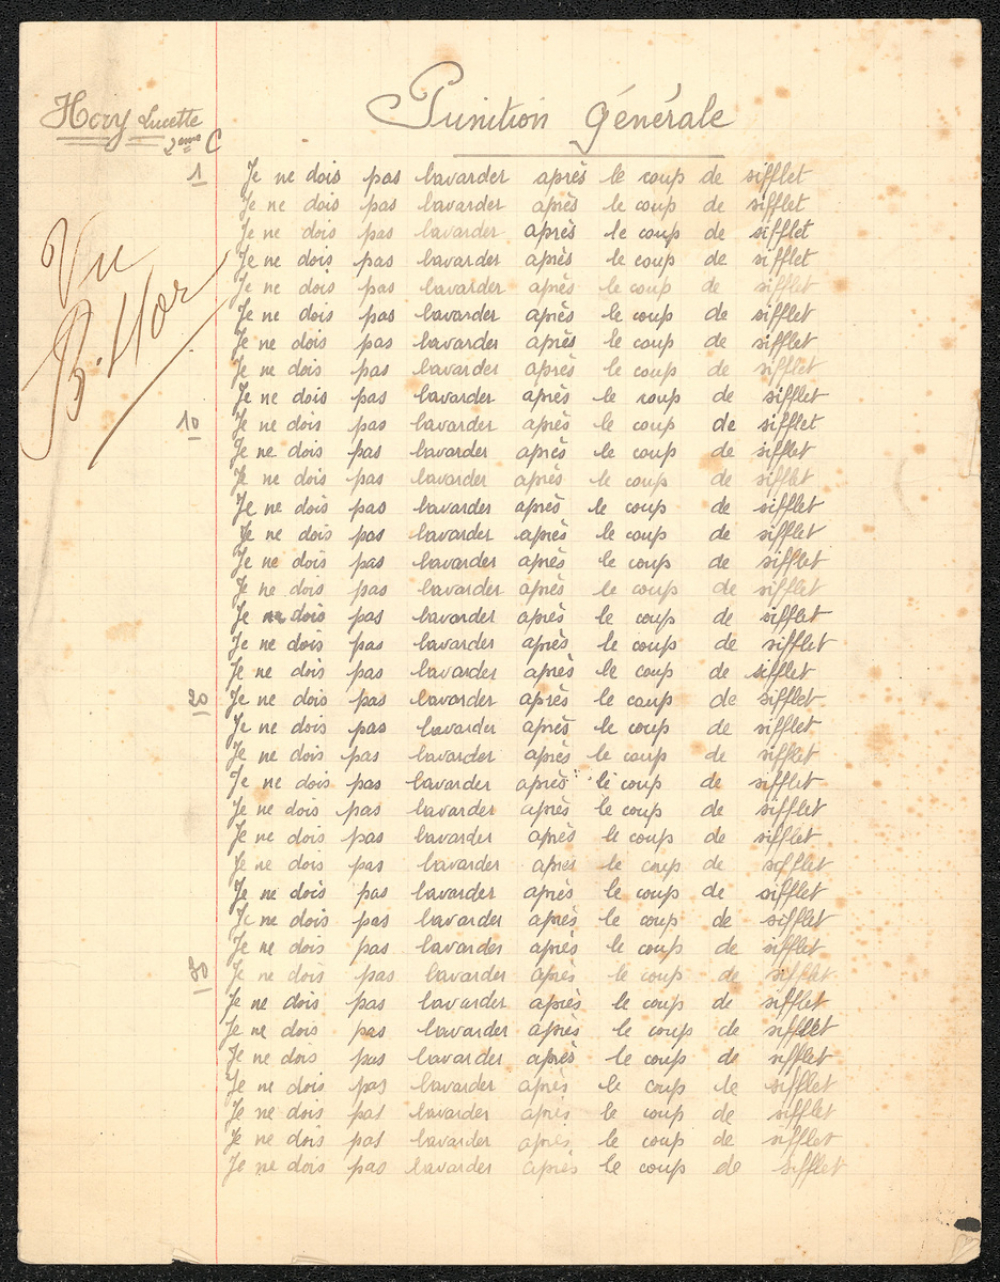 Hory Lucette
2ème C
Punition générale
1 Je ne dois pas bavarder après le coup de sifflet
Je ne dois pas bavarder après le coup de sifflet
Je ne dois pas bavarder après le coup de sifflet
Je ne dois pas bavarder après le coup de sifflet
Je ne dois pas bavarder après le coup de sifflet
Je ne dois pas bavarder après le coup de sifflet
Je ne dois pas bavarder après le coup de sifflet
Je ne dois pas bavarder après le coup de sifflet
Je ne dois pas bavarder après le coup de sifflet
10 Je ne dois pas bavarder après le coup de sifflet
Je ne dois pas bavarder après le coup de sifflet
Je ne dois pas bavarder après le coup de sifflet
Je ne dois pas bavarder après le coup de sifflet
Je ne dois pas bavarder après le coup de sifflet
Je ne dois pas bavarder après le coup de sifflet
Je ne dois pas bavarder après le coup de sifflet
Je ne dois pas bavarder après le coup de sifflet
Je ne dois pas bavarder après le coup de sifflet
Je ne dois pas bavarder après le coup de sifflet
20 Je ne dois pas bavarder après le coup de sifflet
Je ne dois pas bavarder après le coup de sifflet
Je ne dois pas bavarder après le coup de sifflet
Je ne dois pas bavarder après le coup de sifflet
Je ne dois pas bavarder après le coup de sifflet
Je ne dois pas bavarder après le coup de sifflet
Je ne dois pas bavarder après le coup de sifflet
Je ne dois pas bavarder après le coup de sifflet
Je ne dois pas bavarder après le coup de sifflet
Je ne dois pas bavarder après le coup de sifflet
30 Je ne dois pas bavarder après le coup de sifflet
Je ne dois pas bavarder après le coup de sifflet
Je ne dois pas bavarder après le coup de sifflet
Je ne dois pas bavarder après le coup de sifflet
Je ne dois pas bavarder après le coup le sifflet
Je ne dois pas bavarder après le coup de sifflet
Je ne dois pas bavarder après le coup de sifflet
Je ne dois pas bavarder après le coup de sifflet
Vu